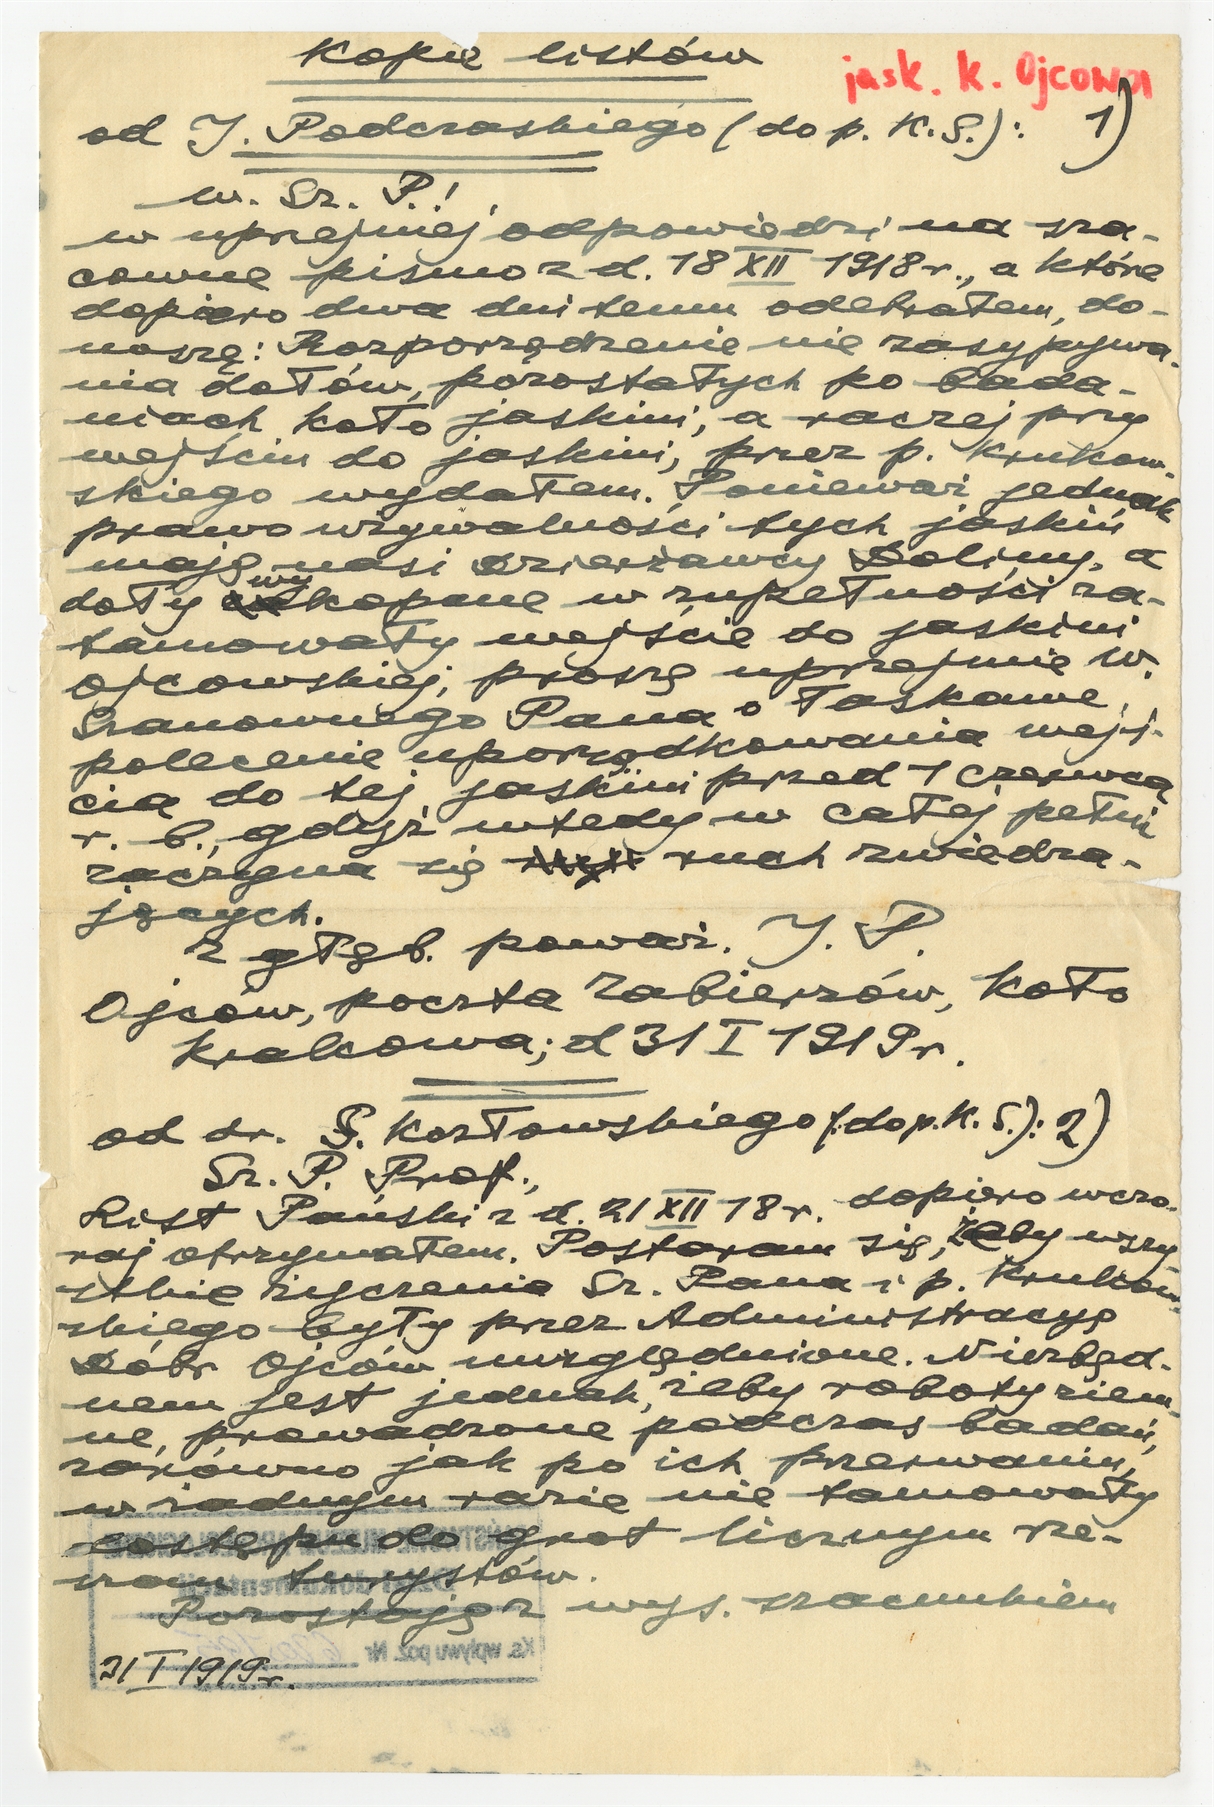 Kopie listów
jask. k. Ojcowa
od J. Podczaskiego (do p. K. S.): 1)
W. Sz. P.!
w uprzejmej odpowiedzi na sza-
cowne pismo z d. 18 XII 1918 r., a które
dopiero dwa dni temu odebrałem, do-
noszę: Rozporządzenie nie zasypywa-
nia dołów, pozostałych po bada-
niach koło jaskini, a raczej przy
wejściu do jaskini, przez p. Krukow-
skiego wydałem. Ponieważ jednak
prawo używalności tych jaskiń
mają nasi dzierżawcy Doliny, a
doły wykopane w zupełności za-
tamowały wejście do jaskini
ojcowskiej, proszę uprzejmie W.
Szanownego Pana o łaskawe
polecenie uporządkowania wejś-
cia do tej jaskini przed 1 czerwca
r. b., gdyż wtedy w całej pełni
zaczyna się ruch zwiedza-
jących.
Z głęb. poważ. J. P.
Ojców, poczta Zabierzów, koło
Krakowa; d 31 I 1919 r.
od dr. S. Kozłowskiego (: do p. K. S.): 2)
Sz. P. Prof.,
List Pański z d. 21 XII 18 r. dopiero wczo-
raj otrzymałem. Postaram się, żeby wszy-
stkie życzenia Sz. Pana i p. Krukow-
skiego były przez Administracyę
Dóbr Ojców uwzględnione. Niezbęd-
nem jest jednak, żeby roboty ziem-
ne, prowadzone podczas badań,
zarówno jak po ich przerwaniu,
w żadnym razie nie tamowały
dostępu do grot licznym rze-
szom turystów.
Pozostaję z wys. szacunkiem
31 I 1919 r.
Dział dokumentacji
Ks. wpływu poz. Nr